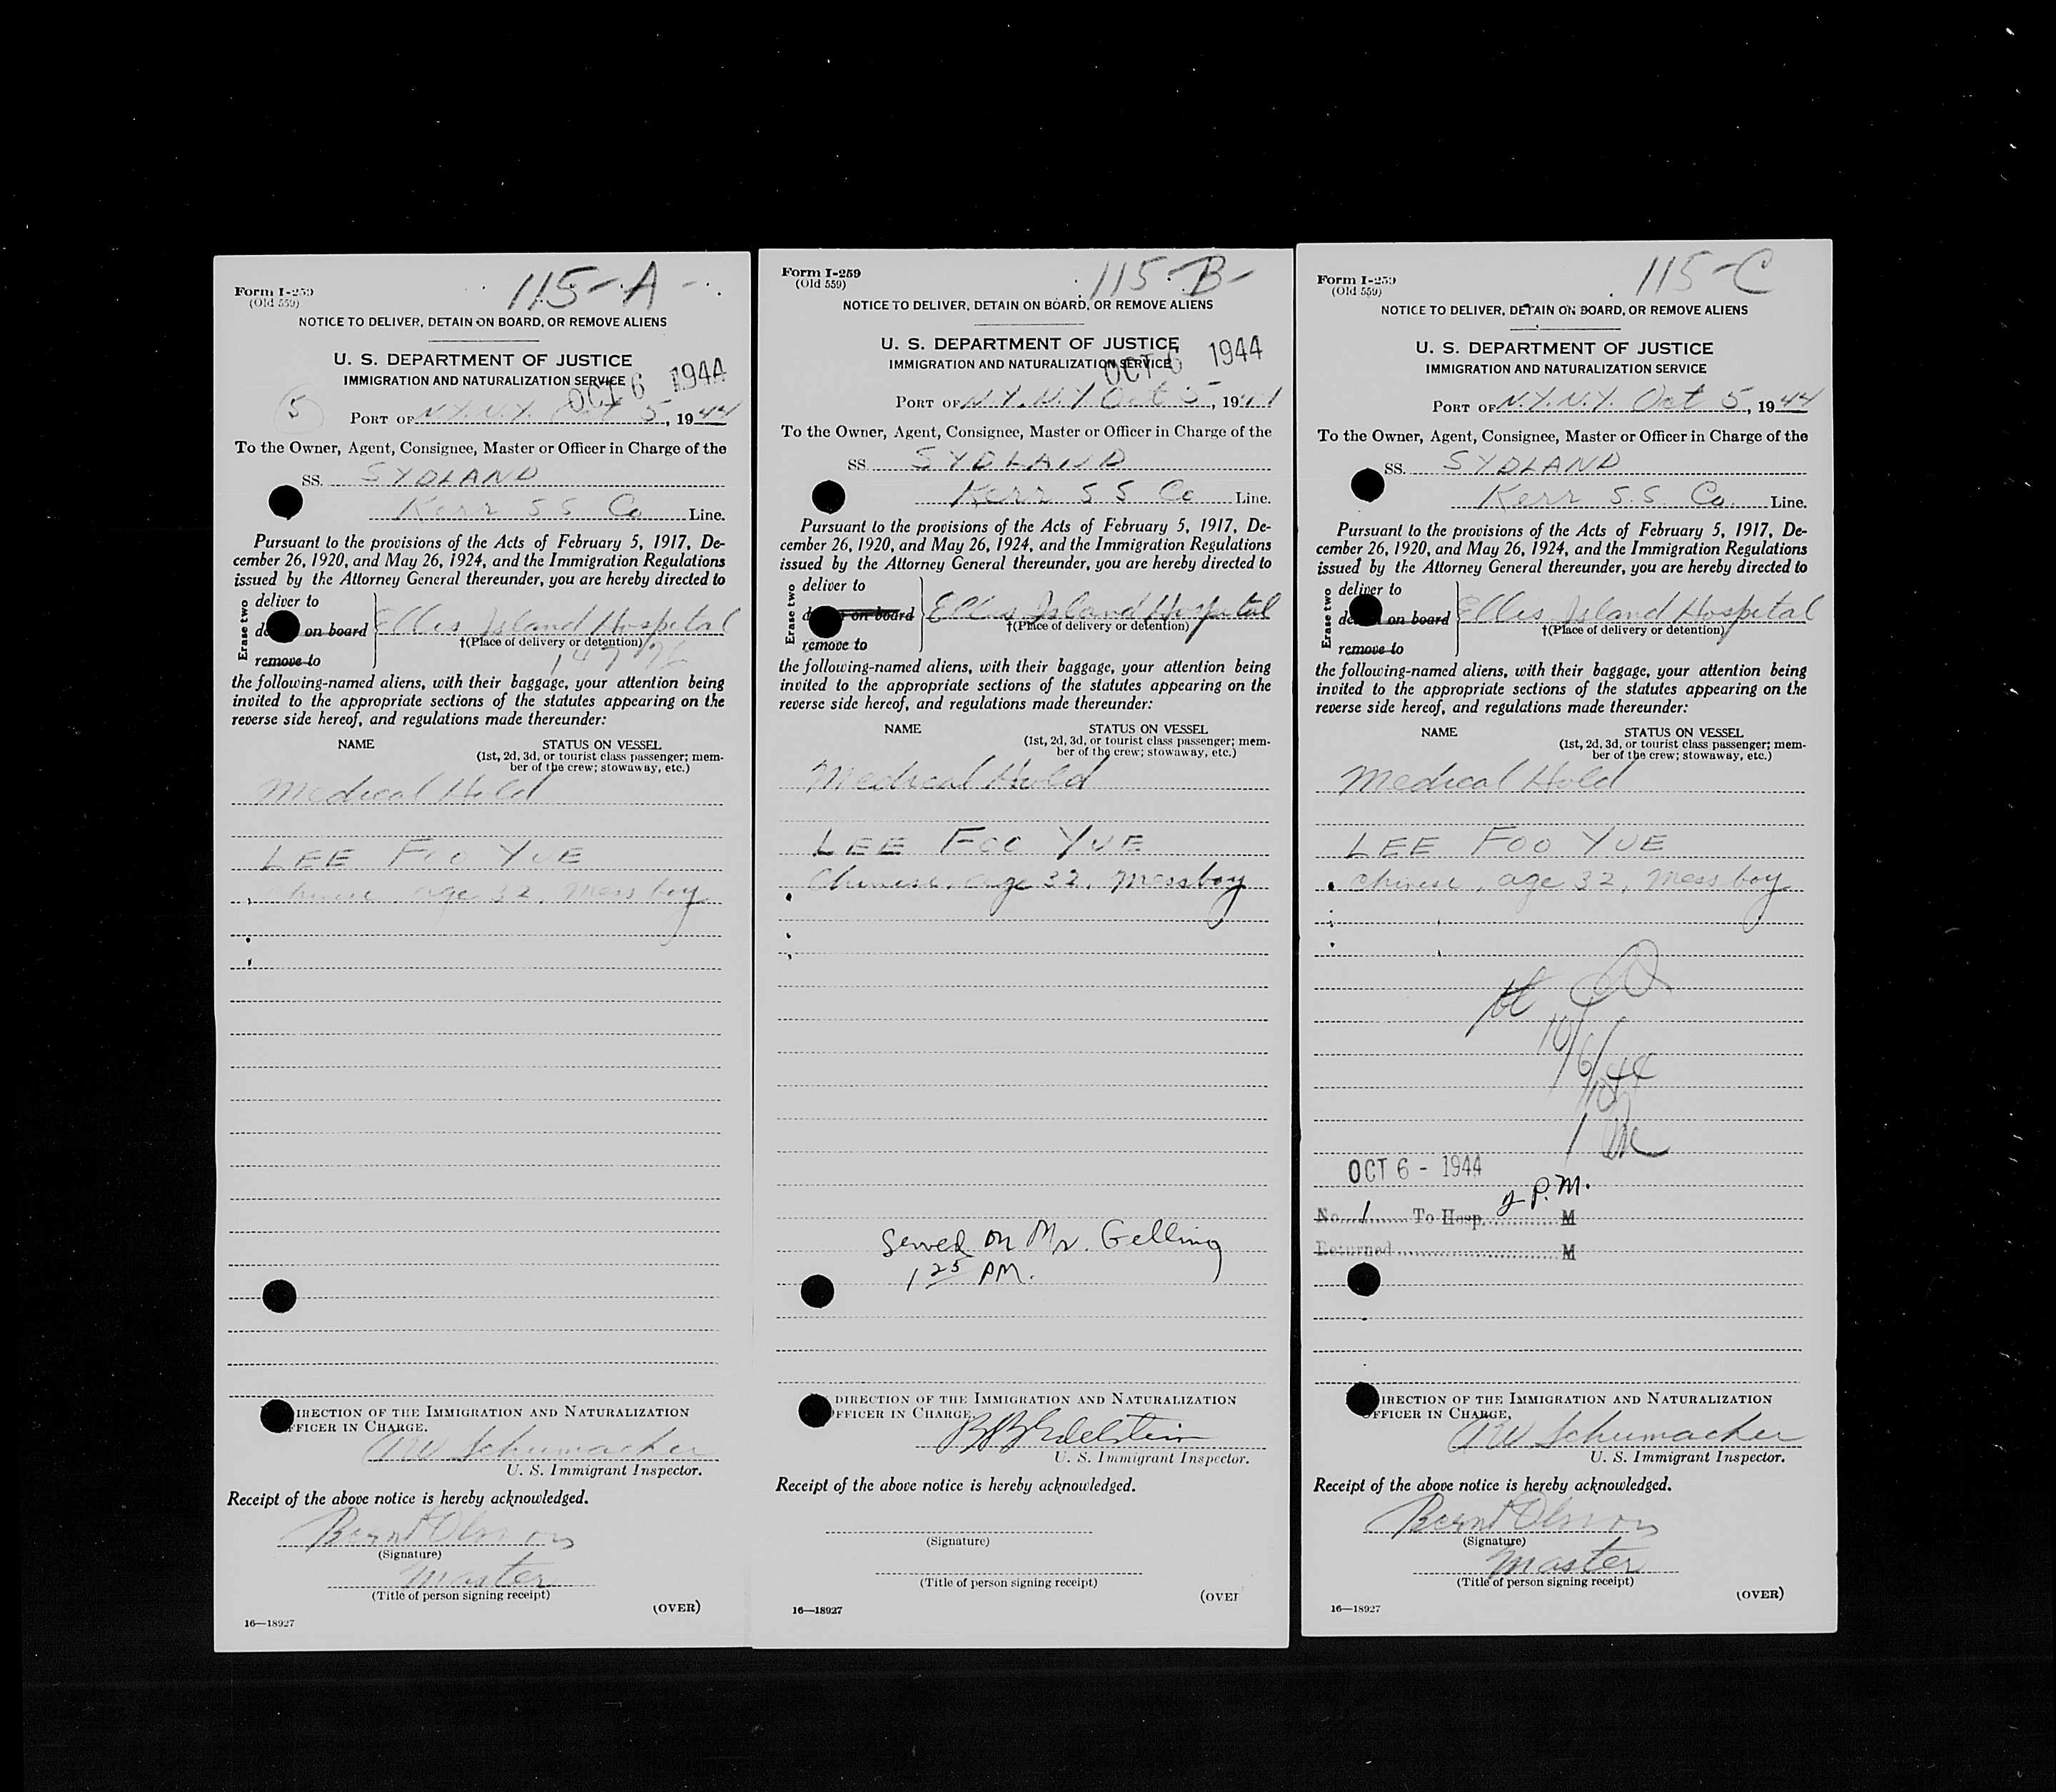 115-A-
Form I-259
(Old 559)
NOTICE TO DELIVER, DETAIN ON BOARD, OR REMOVE ALIENS
U. S. DEPARTMENT OF JUSTICE
IMMIGRATION AND NATURALIZATION SERVICE
OCT 6 1944
5
PORT OF N.Y.N.Y. Oct 5, 1944
To the Owner, Agent, Consignee, Master or Officer in Charge of the
SS. SYDLAND
Kerr SS Co Line.
Pursuant to the provisions of the Acts of February 5, 1917, De-
cember 26, 1920, and May 26, 1924, and the Immigration Regulations
issued by the Attorney General thereunder, you are hereby directed to
Erase two
deliver to
on board
remove to
Ellis Island Hospital
†(Place of delivery or detention)
the following-named aliens, with their baggage, your attention being
invited to the appropriate sections of the statutes appearing on the
reverse side hereof, and regulations made thereunder:
NAME STATUS ON VESSEL
(1st, 2d, 3d, or tourist class passenger; mem-
ber of the crew; stowaway, etc.)
Medical Hold
LEE FOO YUE
Chinese, age 32, Mess boy
IRECTION OF THE IMMIGRATION AND NATURALIZATION
FFICER IN CHARGE.
Schumacher
U. S. Immigrant Inspector.
Receipt of the above notice is hereby acknowledged.
Bernt Olsson
(Signature)
Master
(Title of person signing receipt)
(OVER)
16—18927
115-B-
Form I-259
(Old 559)
NOTICE TO DELIVER, DETAIN ON BOARD, OR REMOVE ALIENS
U. S. DEPARTMENT OF JUSTICE
IMMIGRATION AND NATURALIZATION SERVICE
OCT 6 1944
PORT OF N.Y.N.Y Oct 5, 1944
To the Owner, Agent, Consignee, Master or Officer in Charge of the
SS. SYDLAND
Kerr SS Co Line.
Pursuant to the provisions of the Acts of February 5, 1917, De-
cember 26, 1920, and May 26, 1924, and the Immigration Regulations
issued by the Attorney General thereunder, you are hereby directed to
Erase two
deliver to
on board
remove to
Ellis Island Hospital
†(Place of delivery or detention)
the following-named aliens, with their baggage, your attention being
invited to the appropriate sections of the statutes appearing on the
reverse side hereof, and regulations made thereunder:
NAME STATUS ON VESSEL
(1st, 2d, 3d, or tourist class passenger; mem-
ber of the crew; stowaway, etc.)
Medical Hold
LEE FOO YUE
Chinese, age 32, Messboy
Served on Mr. Gelling
1 25 PM.
DIRECTION OF THE IMMIGRATION AND NATURALIZATION
FFICER IN CHARGE.
Edelstein
U. S. Immigrant Inspector.
Receipt of the above notice is hereby acknowledged.
(Signature)
(Title of person signing receipt)
(OVER
16—18927
115-C
Form I-259
(Old 559)
NOTICE TO DELIVER, DETAIN ON BOARD, OR REMOVE ALIENS
U. S. DEPARTMENT OF JUSTICE
IMMIGRATION AND NATURALIZATION SERVICE
PORT OF N.Y.N.Y. Oct 5, 1944
To the Owner, Agent, Consignee, Master or Officer in Charge of the
SS. SYDLAND
Kerr S.S. Co. Line.
Pursuant to the provisions of the Acts of February 5, 1917, De-
cember 26, 1920, and May 26, 1924, and the Immigration Regulations
issued by the Attorney General thereunder, you are hereby directed to
Erase two
deliver to
on board
remove to
Ellis Island Hospital
†(Place of delivery or detention)
the following-named aliens, with their baggage, your attention being
invited to the appropriate sections of the statutes appearing on the
reverse side hereof, and regulations made thereunder:
NAME STATUS ON VESSEL
(1st, 2d, 3d, or tourist class passenger; mem-
ber of the crew; stowaway, etc.)
Medical Hold
LEE FOO YUE
Chinese, age 32, Mess boy
10/6/44
OCT 6 - 1944
P.M.
No. 1 To Hosp. M
Returned M
IRECTION OF THE IMMIGRATION AND NATURALIZATION
FFICER IN CHARGE,
Schumacher
U. S. Immigrant Inspector.
Receipt of the above notice is hereby acknowledged.
Bernt Olsson
(Signature)
Master
(Title of person signing receipt)
(OVER)
16—18927